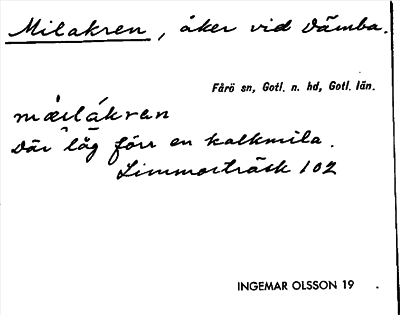 Milakren, åker vid Dämba.
Fårö sn, Gotl. n. hd, Gotl. län.
mæilákran
Där låg förr en kalkmila.
Limmorträsk 102
INGEMAR OLSSON 19 .